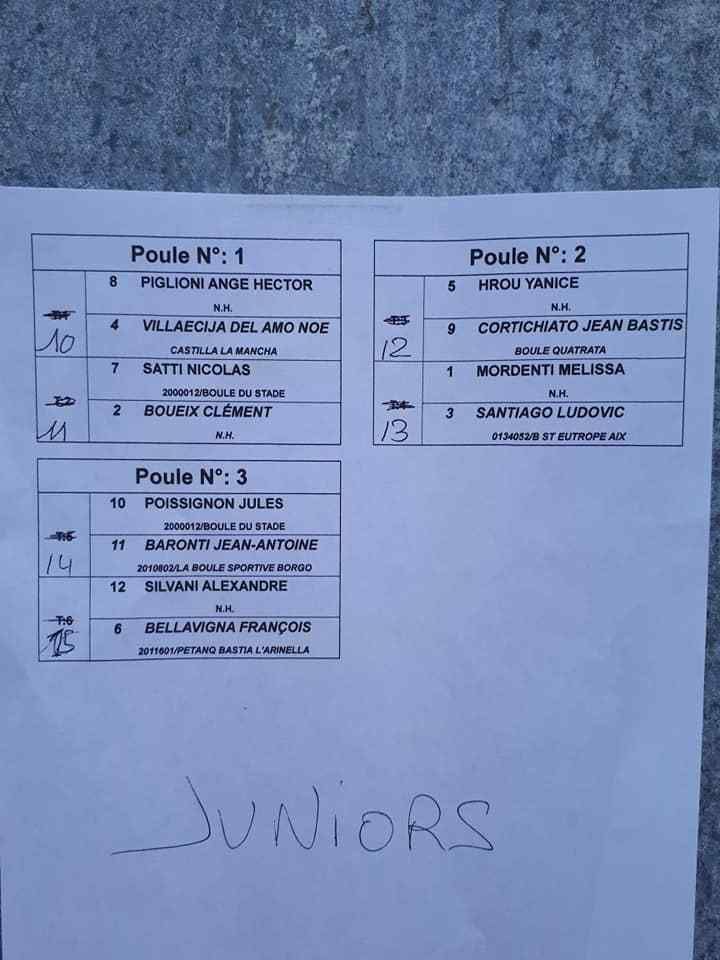 Poule N°: 1
8 PIGLIONI ANGE HECTOR
N.H.
4 VILLAECIJA DEL AMO NOE
10
CASTILLA LA MANCHA
7 SATTI NICOLAS
2000012/BOULE DU STADE
T:2
2 BOUEIX CLÉMENT
11
N.H.
Poule N°: 2
5 HROU YANICE
N.H.
T:3
9 CORTICHIATO JEAN BASTIS
12
BOULE QUATRATA
1 MORDENTI MELISSA
N.H.
T:4
3 SANTIAGO LUDOVIC
13
0134052/B ST EUTROPE AIX
Poule N°: 3
10 POISSIGNON JULES
2000012/BOULE DU STADE
T:5
11 BARONTI JEAN-ANTOINE
14
2010602/LA BOULE SPORTIVE BORGO
12 SILVANI ALEXANDRE
N.H.
T:6
6 BELLAVIGNA FRANÇOIS
15
2011601/PETANQ BASTIA L'ARINELLA
JUNIORS